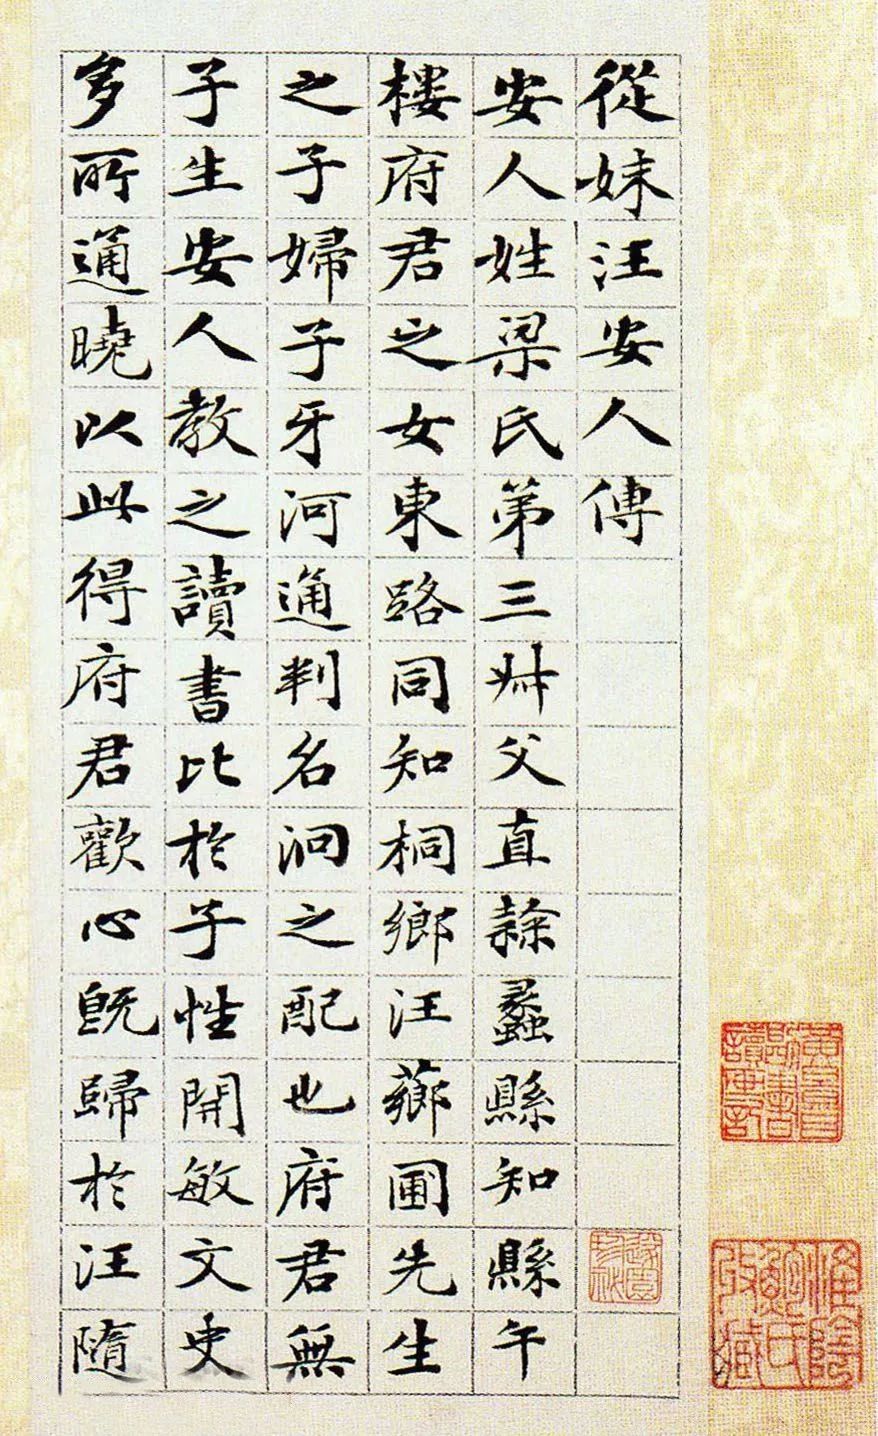 從妹汪安人傳
安人姓梁氏第三父直隸蠡縣知縣午
樓府君之女東路同知桐鄉汪薌圃先生
之子婦子牙河通判名泂之配也府君無
子生安人教之讀書比於子性開敏文史
多所通曉以此得府君歡心既歸於汪隨